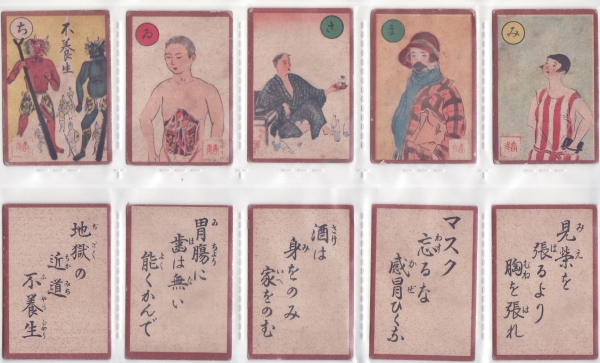 ち
不養生
ゐ
さ
ま
み
地獄の
近道
不養生
胃腸に
齒は無い
能くかんで
酒は
身をのみ
家をのむ
マスク
忘るな
感冒ひく
見榮を
張るより
胸を張れ